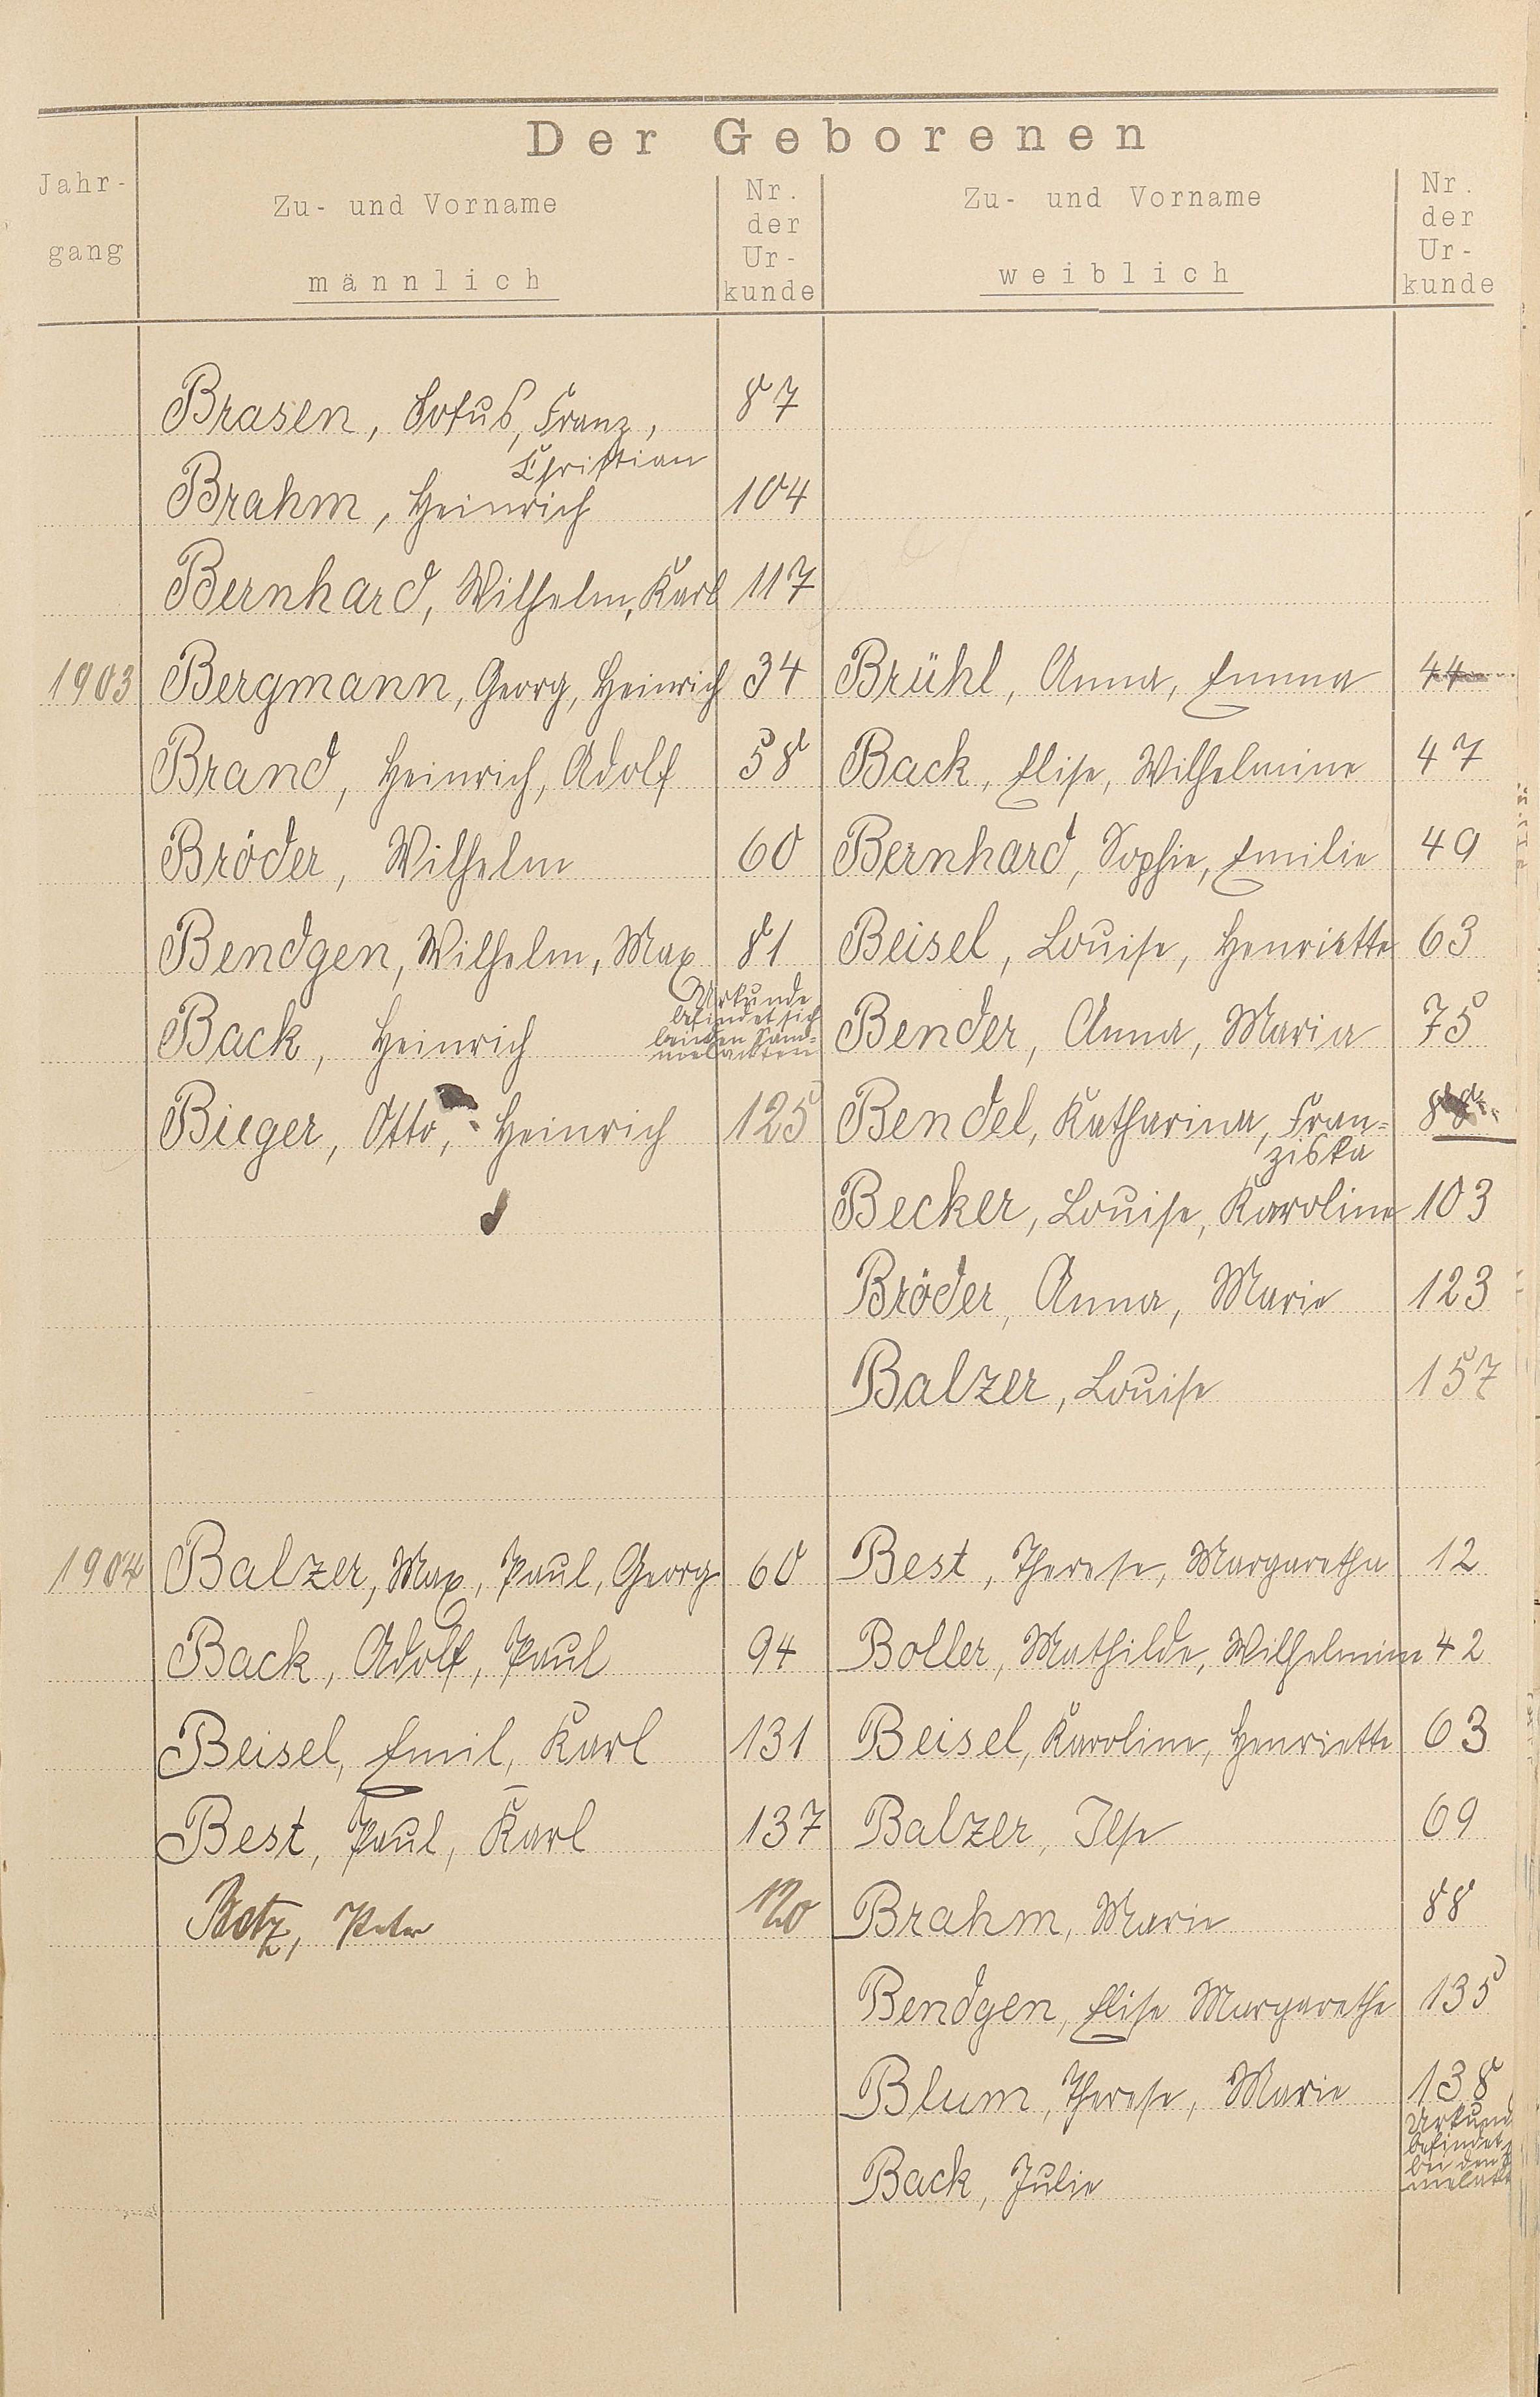 Der Geborenen
Jahr-
gang
Zu- und Vorname
männlich
Nr.
der
Ur-
kunde
Zu- und Vorname
weiblich
Nr.
der
Ur-
kunde
Brasen, Franz, 87
Christian
Brahm, Heinrich 104
Bernhard, Wilhelm, Karl 117
1903 Bergmann, Georg, Heinrich 34 Brühl, Anna, Emma 44
Brand, Heinrich, Adolf 58 Back, Elise, Wilhelmine 47
Bröder, Wilhelm 60 Bernhard, Sophie, Emilie 49
Bendgen, Wilhelm, Max 81 Beisel, Louise, Henriette 63
Back, Heinrich
Urkunde
befindet sich
bei den Sam=
melakten
Bender, Anna, Maria 75
Bieger, Otto, Heinrich 125 Bendel, Katharina, Fran=
ziska
Becker, Louise, Karoline 103
Bröder, Anna, Marie 123
Balzer, Louise 157
1904 Balzer, Max, Paul, Georg 60 Best, Therese, Margaretha 12
Back, Adolf, Paul 94 Boller, Mathilde, Wilhelmine 42
Beisel, Emil, Karl 131 Beisel, Karoline, Henriette 63
Best, Paul, Karl 137 Balzer, Ilse 69
Botz, Peter 120 Brahm, Marie 88
Bendgen, Elise Margarethe 135
Blum, Therese, Marie 138
Back, Julie
Urkund
befindet
bei den
melakt